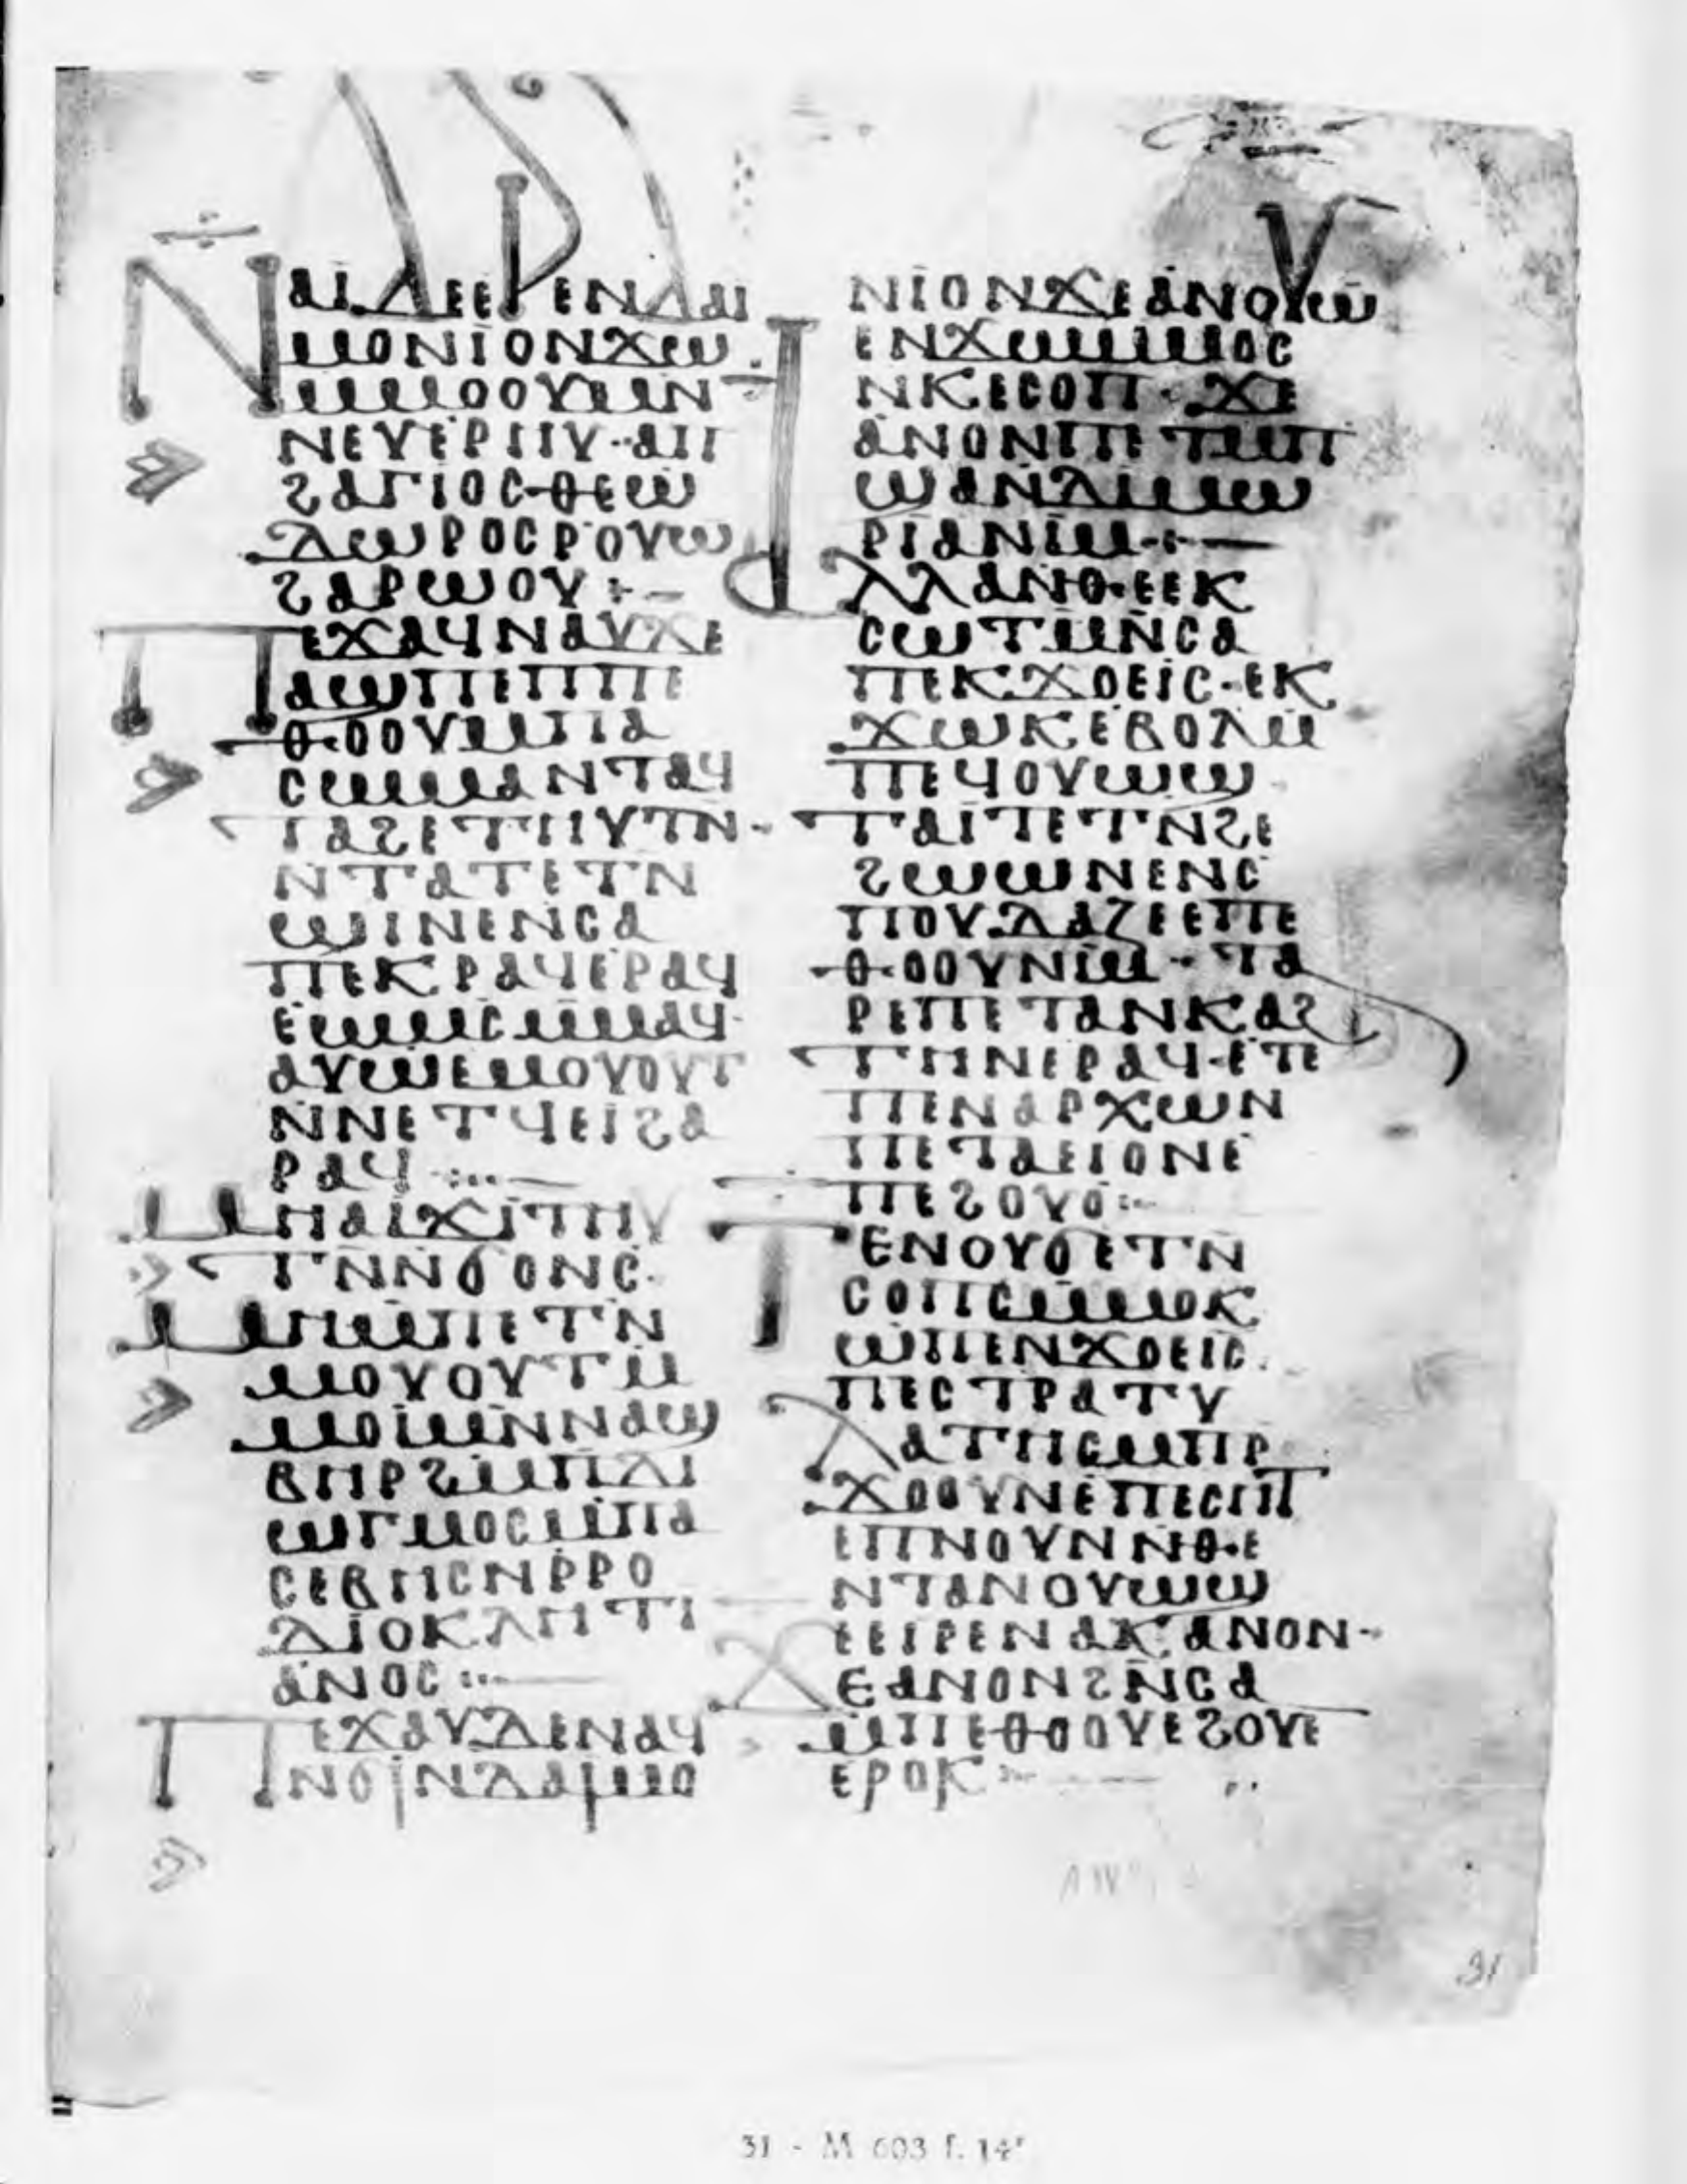 ⲚⲀⲒⲆⲈⲈⲢⲈⲚⲆⲀⲒ
ⲘⲞⲚⲒⲞⲚϪⲰ
ⲘⲘⲞⲞⲨⲘⲚ
ⲚⲈⲨⲈⲢⲎⲨ·ⲀⲠ
ϨⲀⲄⲒⲞⲤⲐⲈⲰ
ⲆⲰⲢⲞⲤⲢⲞⲨⲰ
ϨⲀⲢⲰⲞⲨ:—
ⲠⲈϪⲀϤⲚⲀⲨϪⲈ
ⲀϢⲠⲈⲠⲠⲈ
ⲐⲞⲞⲨⲘⲠⲀ
ⲤⲰⲘⲀⲚⲦⲀϤ
ⲦⲀϨⲈⲦⲎⲨⲦⲚ·
ⲚⲦⲀⲦⲈⲦⲚ
ϢⲒⲚⲈⲚⲤⲀ
ⲠⲈⲔⲢⲀϤⲈⲢⲀϤ
ⲈⲰⲘⲤⲘⲘⲀϤ·
ⲀⲨⲰⲈⲘⲞⲨⲞⲨⲦ
ⲚⲚⲈⲦϤⲈⲒϨⲀ
ⲢⲀϤ:—
ⲘⲎⲀⲒϪⲒⲦⲎⲨ
ⲦⲚⲚϬⲞⲚⲤ·
ⲘⲎⲘⲠⲈⲦⲚ
ⲘⲞⲨⲞⲨⲦⲘ
ⲘⲞⲒⲘⲚⲚⲀϢ
ⲂⲎⲢϨⲘⲠⲆⲒ
ⲰⲄⲘⲞⲤⲘⲠⲀ
ⲤⲈⲂⲎⲤⲚⲢⲢⲞ
ⲆⲒⲞⲔⲖⲎⲦⲒ
ⲀⲚⲞⲤ:—
ⲠⲈϪⲀⲨⲆⲈⲚⲀϤ
ⲚϬⲒⲚⲆⲀⲒⲘⲞ
ⲚⲒⲞⲚϪⲈⲀⲚⲞⲨⲰ
ⲈⲚϪⲰⲘⲘⲞⲤ
ⲚⲔⲈⲤⲞⲠ·ϪⲈ
ⲀⲚⲞⲚⲠⲈⲦⲘⲠ
ϢⲀⲚⲆⲒⲘⲰ
ⲢⲒⲀⲚⲒⲘ·:—
ⲀⲖⲖⲀⲚⲐⲈⲈⲔ
ⲤⲰⲦⲘⲚⲤⲀ
ⲠⲈⲔϪⲞⲈⲒⲤ·ⲈⲔ
ϪⲰⲔⲈⲂⲞⲖⲘ
ⲠⲈϤⲞⲨⲰϢ·
ⲦⲀⲒⲦⲈⲦⲚϨⲈ
ϨⲰⲰⲚⲈⲚⲤ
ⲠⲞⲨⲆⲀⲌⲈⲈⲠⲈ
ⲐⲞⲞⲨⲚⲒⲘ·ⲦⲀ
ⲢⲈⲠⲈⲦⲀⲚⲔⲀϨ
ⲦⲎⲚⲈⲢⲀϤ·ⲈⲦⲈ
ⲠⲈⲚⲀⲢⲬⲰⲚ
ⲠⲈⲦⲀⲈⲒⲞⲚⲈ
ⲠⲈϨⲞⲨⲞ:—
ⲦⲈⲚⲞⲨϬⲈⲦⲚ
ⲤⲞⲠⲤⲘⲘⲞⲔ
ⲰⲠⲈⲚϪⲞⲈⲒⲤ·
ⲠⲈⲤⲦⲢⲀⲦⲨ
ⲖⲀⲦⲎⲤⲘⲠⲢ
ϪⲞⲞⲨⲚⲈⲠⲈⲤⲎⲦ
ⲈⲠⲚⲞⲨⲚⲚⲐⲈ
ⲚⲦⲀⲚⲞⲨⲰϢ
ⲈⲈⲒⲢⲈⲚⲀⲔⲀⲚⲞⲚ·
ϪⲈⲀⲚⲞⲚϨⲚⲤⲀ
ⲘⲠⲈⲐⲞⲞⲨⲈϨⲞⲨⲈ
ⲈⲢⲞⲔ:—
31
31 - M 603 f. 14ʳ